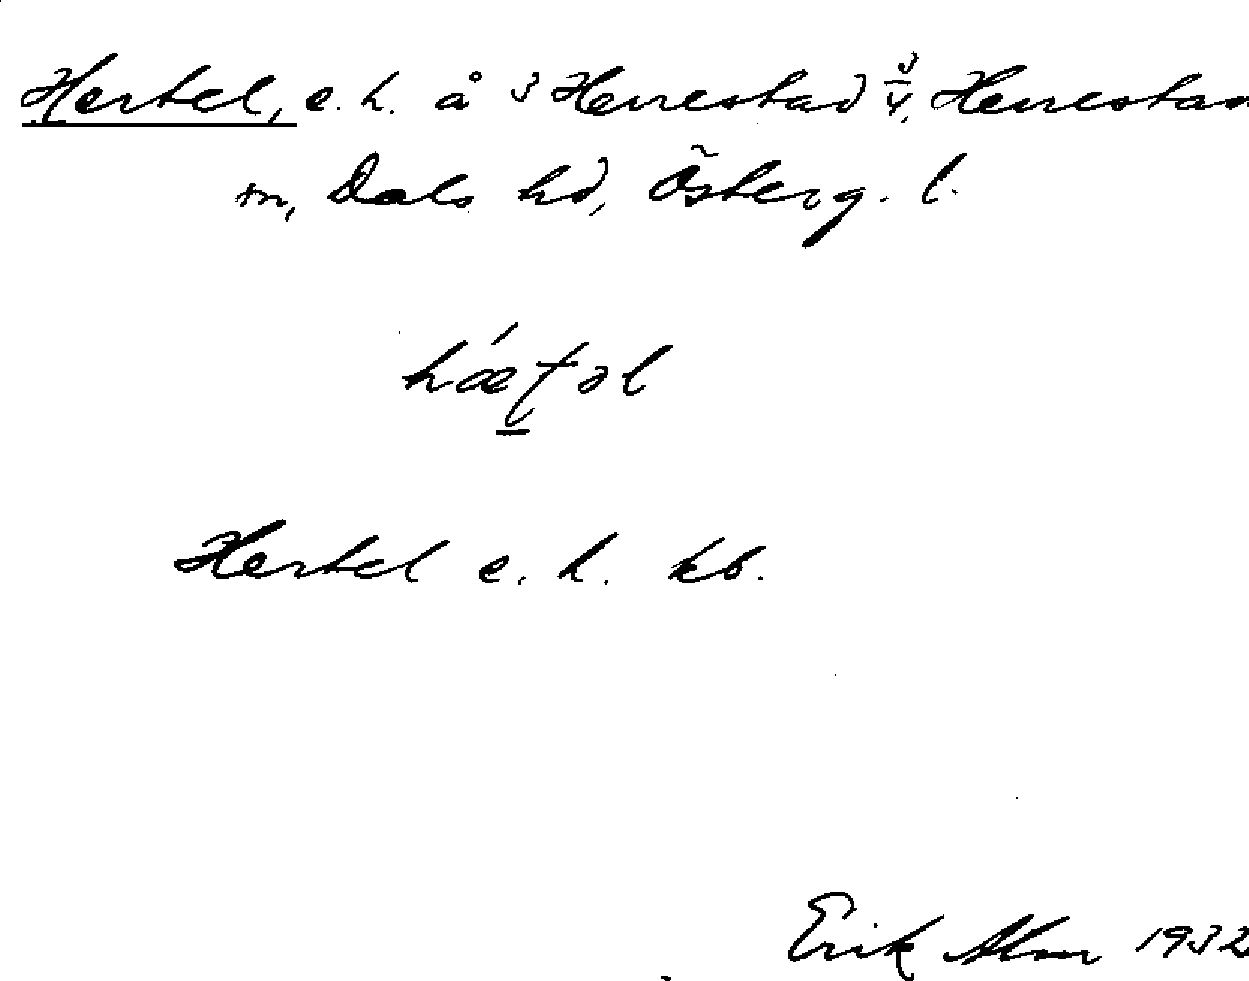 Hertel, e. h. å 3 Herrestad 3/4, Herrestad
sn, Dals hd, Österg. l.
hǽtəl
Hertel e. h. kb.
Erik Alm 1932